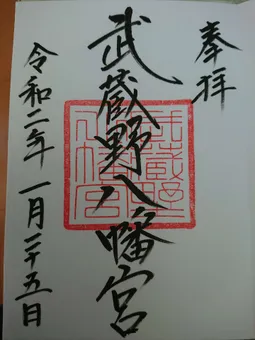 奉拝
武蔵野八幡宮
令和二年 一月二十五日
武蔵野八幡宮